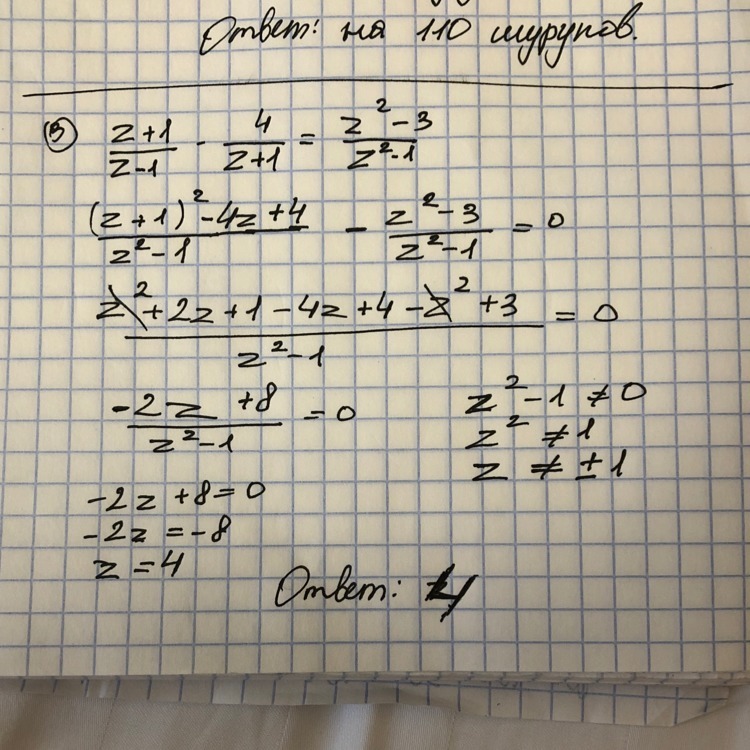 Ответ: на 110 шурупов.
③ (z+1)/(z-1) - 4/(z+1) = (z²-3)/(z²-1)
((z+1)²-4z+4)/(z²-1) - (z²-3)/(z²-1) = 0
(z²+2z+1-4z+4-z²+3)/(z²-1) = 0
(-2z+8)/(z²-1) = 0
z²-1≠0
z²≠1
z≠±1
-2z+8=0
-2z=-8
z=4
Ответ: 4